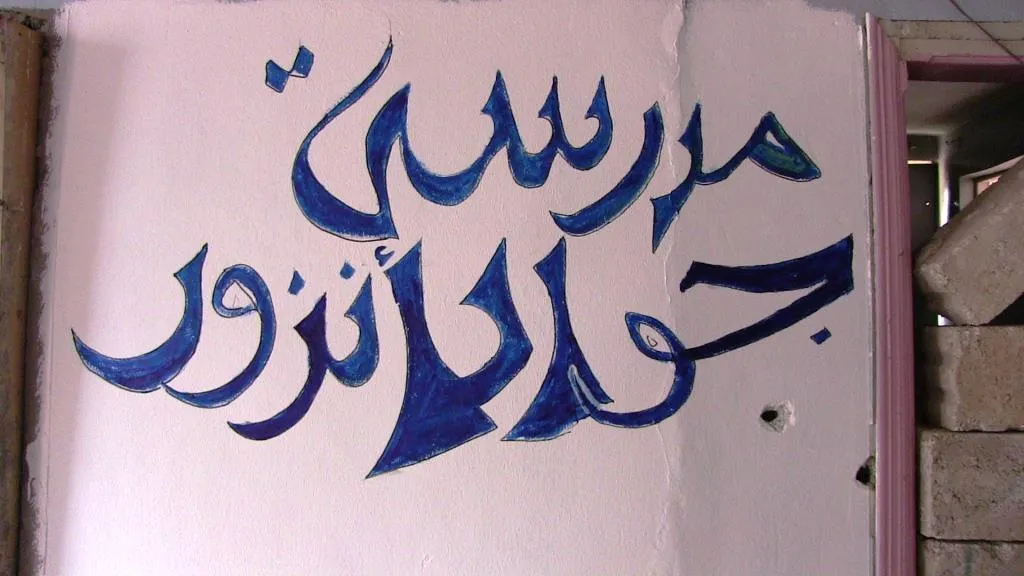 مدرسة
جواد أنزور